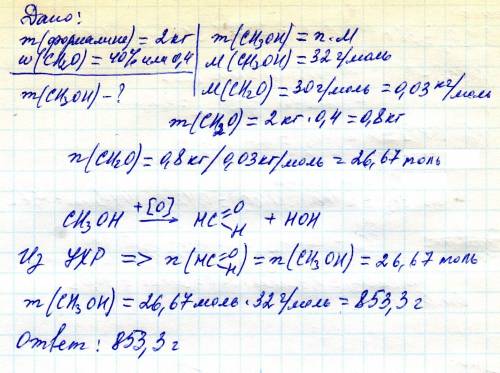 Дано:
m(формалина) = 2 кг
w(CH₂O) = 40% или 0,4
m(CH₃OH) - ?
m(CH₃OH) = n·M
M(CH₃OH) = 32 г/моль
M(CH₂O) = 30 г/моль = 0,03 кг/моль
m(CH₂O) = 2 кг · 0,4 = 0,8 кг
n(CH₂O) = 0,8 кг / 0,03 кг/моль = 26,67 моль
CH₃OH +[O] → HC=O H + HOH
Из УХР => n(HC=O H) = n(CH₃OH) = 26,67 моль
m(CH₃OH) = 26,67 моль · 32 г/моль = 853,3 г
Ответ: 853,3 г